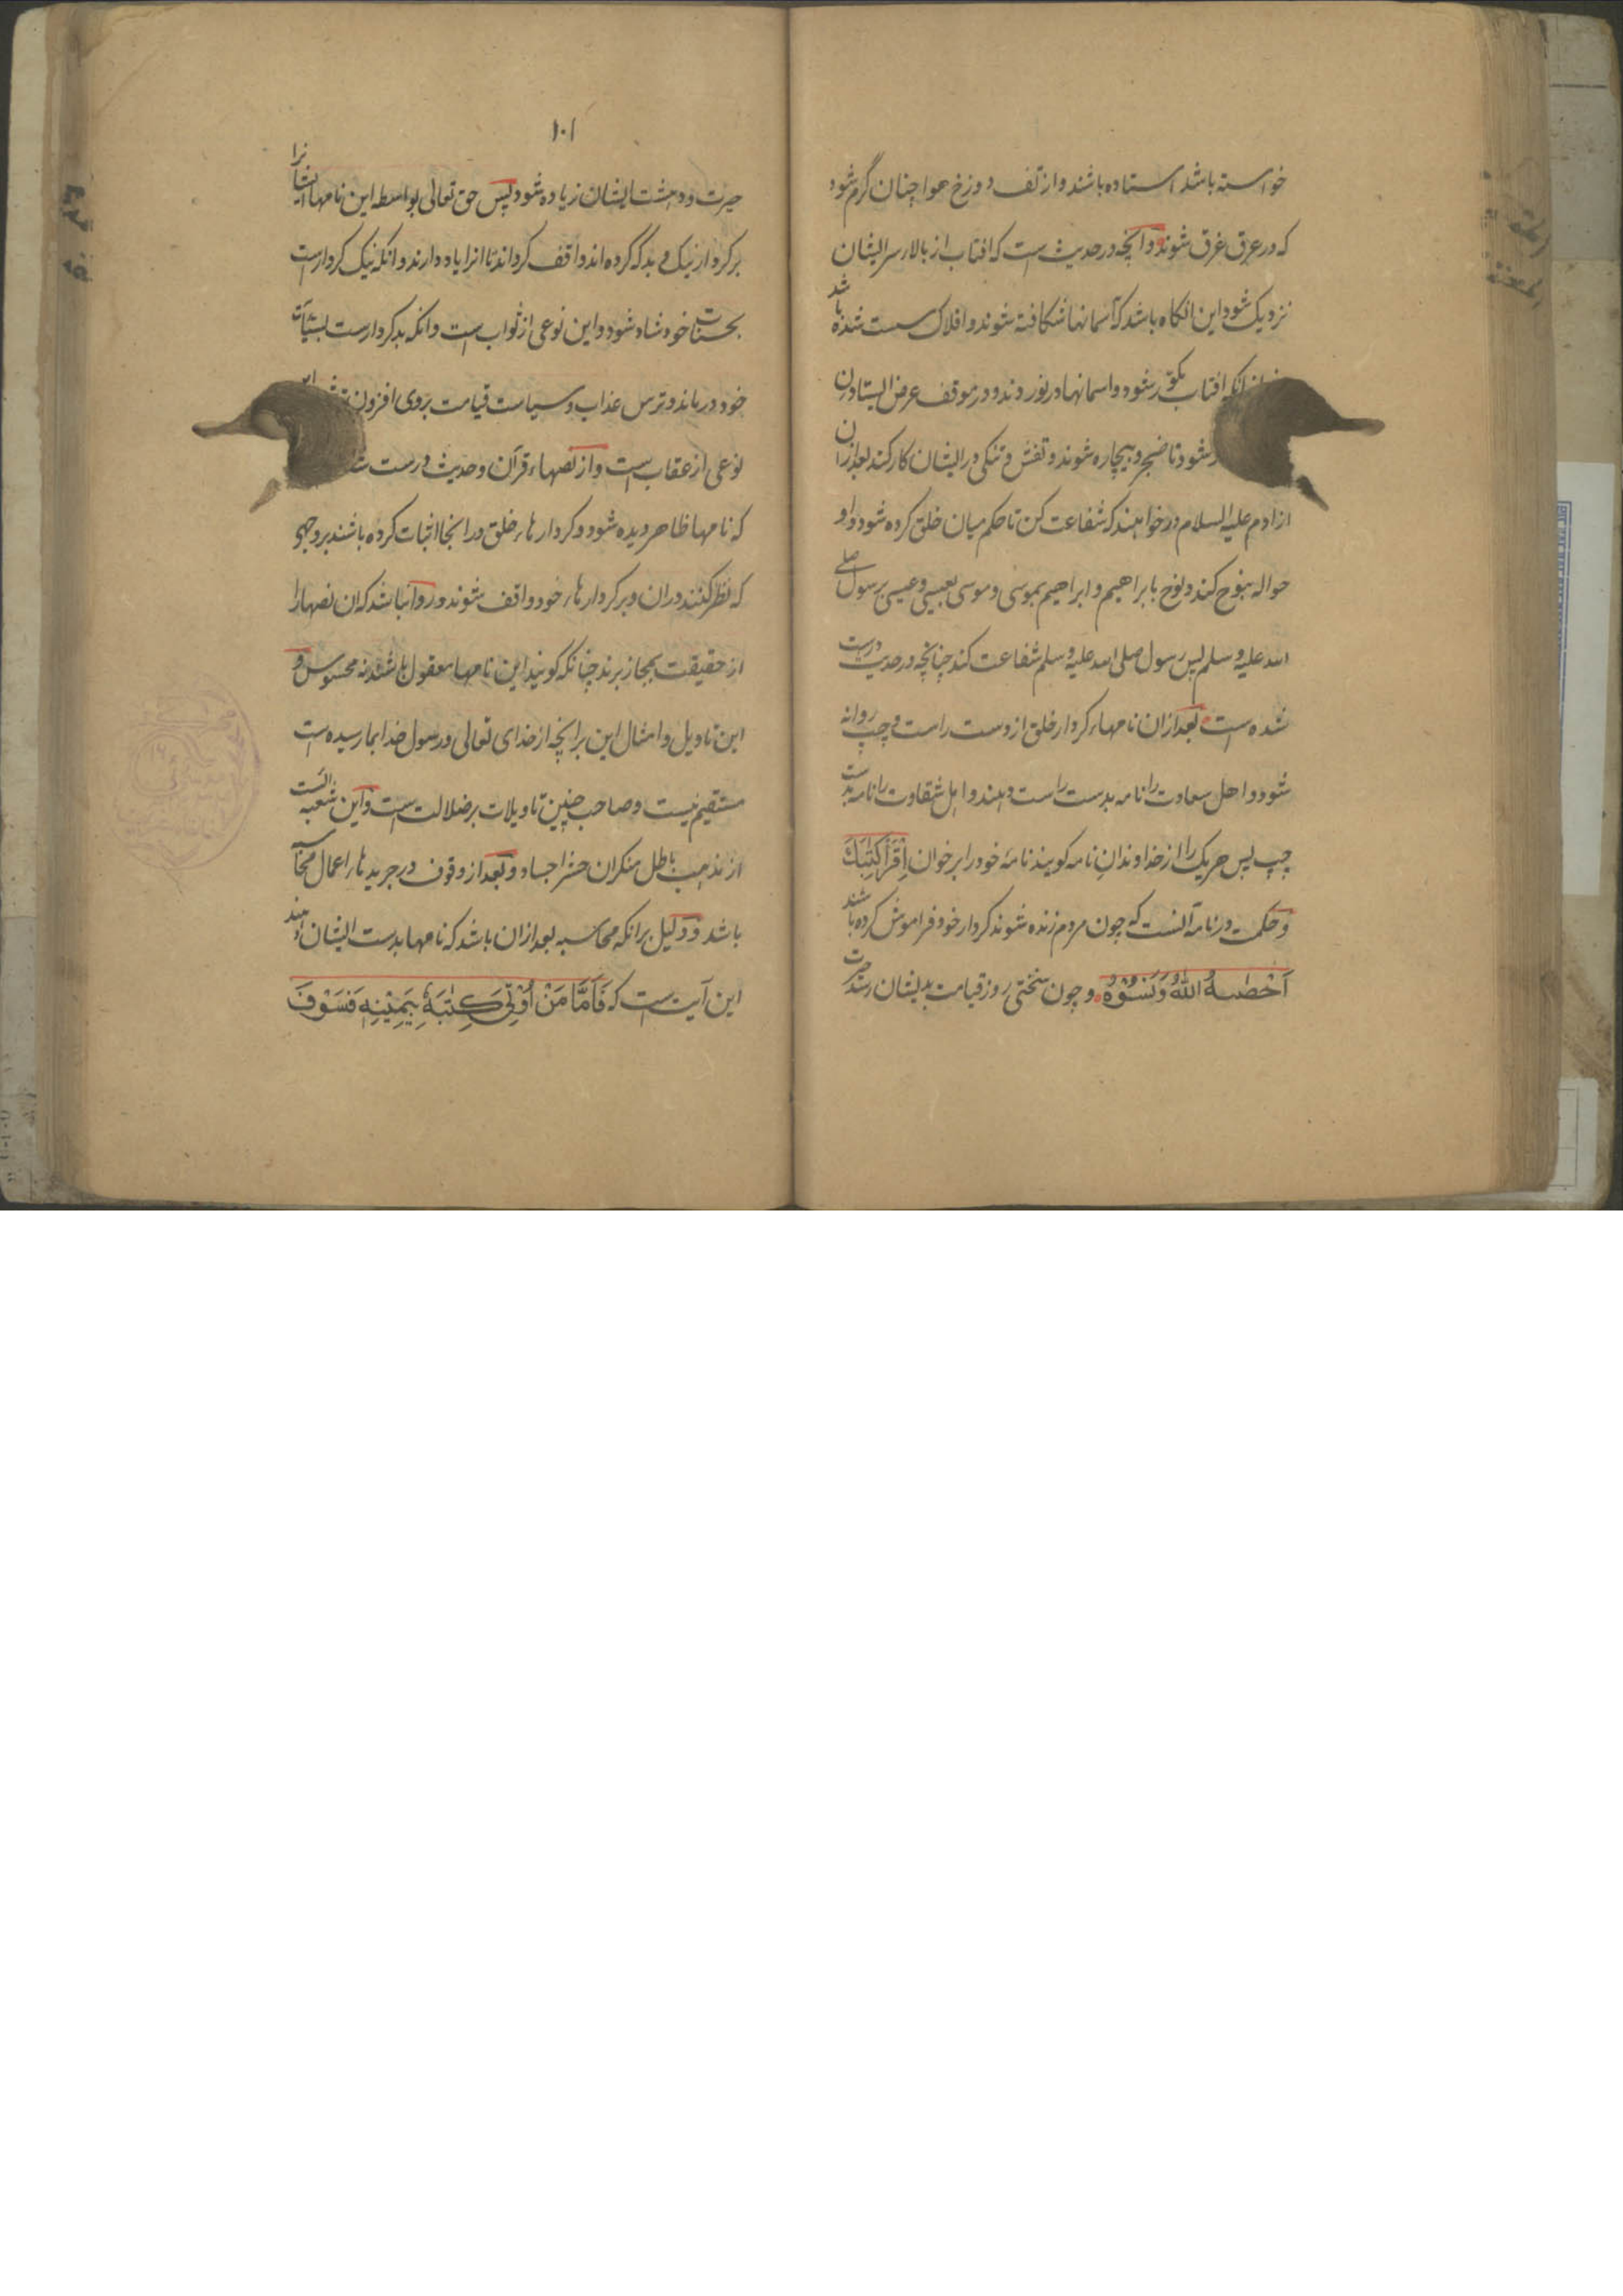 خواسته باشد استاده باشند و از تف دوزخ هوا چنان گرم شود
که در عرق غرق شوند و آنچه در حدیث است که افتاب از بالار سر ایشان
نزدیک شود این انکاه باشد که آسمانها شکافته شوند و افلاک سست شده باشد
انکه افتاب مکور شود و اسمانها در نوردند و در موقف عرض ایستادن
شود تا ضجر و بیچاره شوند و تفش و تنکی در ایشان کار کند بعد ازان
از ادم علیه السلام در خواهند که شفاعت کن تا حکم میان خلق کرده شود و او
حواله بنوح کند و نوح بابراهیم و ابراهیم بموسی و موسی بعیسی و عیسی برسول صلی
الله علیه و سلم پس رسول صلی الله علیه و سلم شفاعت کند چنانچه در حدیث درست
شده است بعد ازان نامهاء کردار خلق از دست راست و چپ روانه
شود و اهل سعادت را نامه بدست راست دهند و اهل شقاوت را نامه بدست
چپ پس هر یک را از خداوندان نامه کویند نامهٔ خود را بر خوان اِقْرَأْ كِتٰبَكَ
و حکمت در نامه آنست که چون مردم زنده شوند کردار خود فراموش کرده باشند
اَحْصٰىهُ اللّٰهُ وَنَسُوْهُ و چون سختی روز قیامت بدیشان رسد حیرت
۱۰۱
حیرت و دهشت ایشان زیاده شود پس حق تعالی بواسطه این نامها ایشانرا
بر کردار نیک و بد که کرده اند واقف کرداند تا انرا یاد دارند و انکه نیک کردارست
بحسنات خود شاد شود و این نوعی از ثواب است و انکه بد کردارست بسیآت
خود درماند و ترس عذاب و سیاست قیامت بروی افزون
نوعی از عقاب است و از نصهاء قرآن و حدیث درست
که نامها ظاهر دیده شود و کردارهاء خلق در انجا اثبات کرده باشند بر وجهی
که نظر کنند دران و بر کردارهاء خود واقف شوند و روا نباشد که ان نصهارا
از حقیقت بمجاز برند چنانکه کویند این نامها معقول باشد نه محسوس و
این تاویل و امثال این بر انچه از خدای تعالی و رسول خدا بما رسیده است
مستقیم نیست و صاحب چنین تاویلات بر ضلالت است و این شعبه ایست
از مذهب باطل منکران حشر اجساد و بعد از وقوف در جریدهاء اعمال
باشد و دلیل بر انکه محاسبه بعد ازان باشد که نامها بدست ایشان دهند
این آیت است که فَاَمَّا مَنْ اُوْتِىَ كِتٰبَهٗ بِيَمِيْنِهٖ فَسَوْفَ